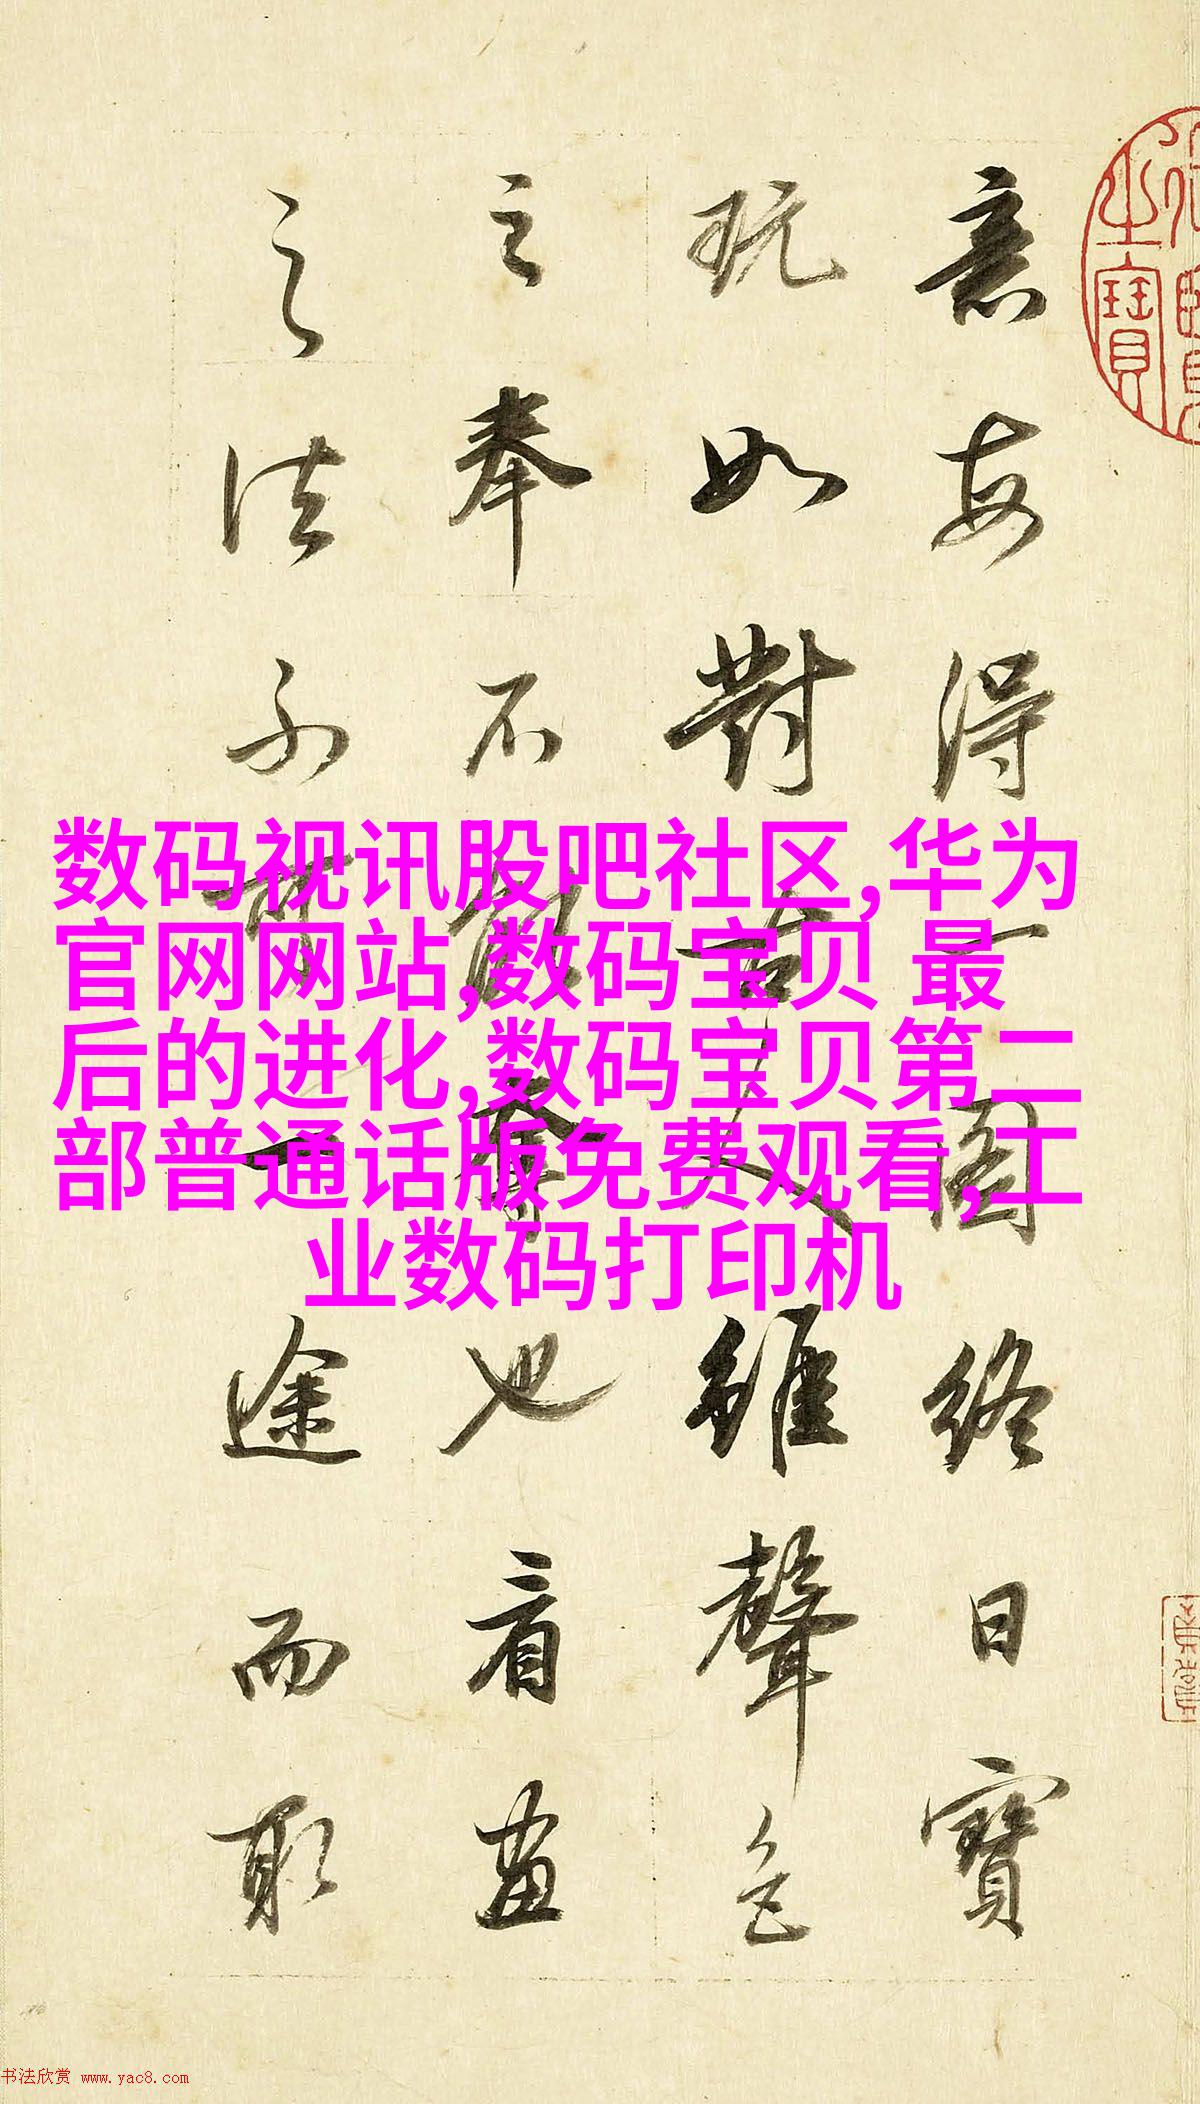 意每得一圖終日寶
玩如對古人雖聲色
之奉不能奪也看畫
之法不可一途而取
之寶
数码视讯股吧社区,华为
官网网站,数码宝贝 最
后的进化,数码宝贝第二
部普通话版免费观看,工
业数码打印机
书法欣赏 www.yac8.com